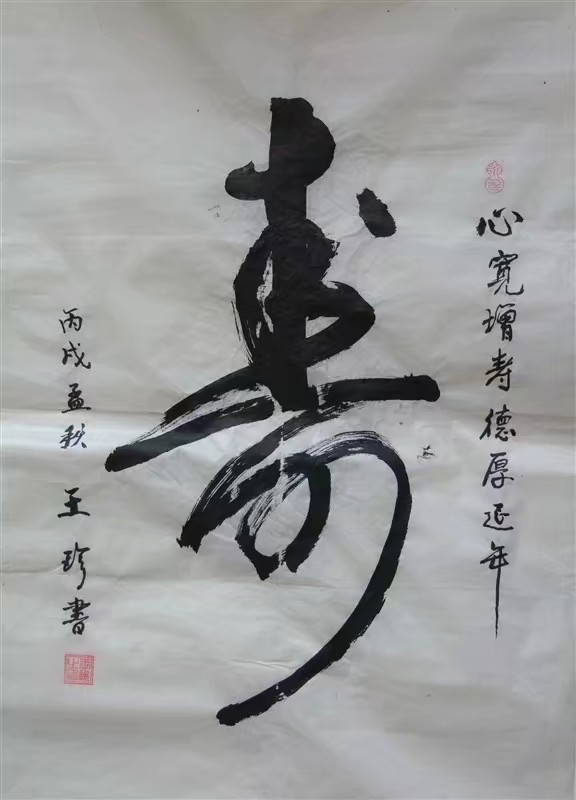 心宽增寿德厚延年
寿
丙戌孟秋 王珍书